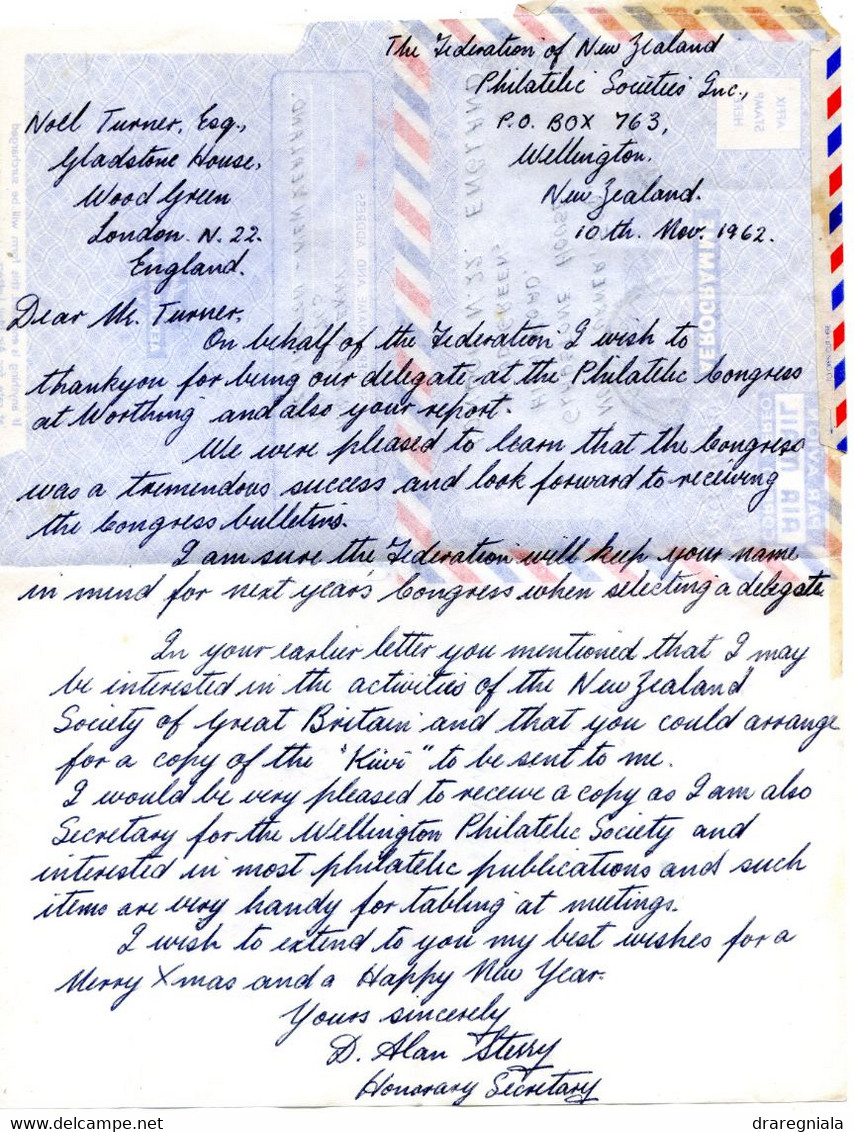 The Federation of New Zealand
Philatelic Societies Inc.,
P.O. BOX 763,
Wellington.
New Zealand.
10th. Nov. 1962.
Noel Turner, Esq.,
Gladstone House,
Wood Green
London. N. 22.
England.
Dear Mr. Turner,
On behalf of the Federation I wish to
thankyou for being our delegate at the Philatelic Congress
at Worthing and also your report.
We were pleased to learn that the Congress
was a tremendous success and look forward to receiving
the Congress bulletins.
I am sure the Federation will keep your name
in mind for next year's Congress when selecting a delegate
In your earlier letter you mentioned that I may
be interested in the activities of the New Zealand
Society of Great Britain and that you could arrange
for a copy of the "Kiwi" to be sent to me.
I would be very pleased to receive a copy as I am also
Secretary for the Wellington Philatelic Society and
interested in most philatelic publications and such
items are very handy for tabling at meetings.
I wish to extend to you my best wishes for a
Merry Xmas and a Happy New Year.
Yours sincerely
D. Alan Sterry
Honorary Secretary
AFFIX
STAMP
HERE
AEROGRAMME
AIR MAIL
PAR AVION
NAME AND ADDRESS
this form will be surcharged
delcampe.net
draregniala